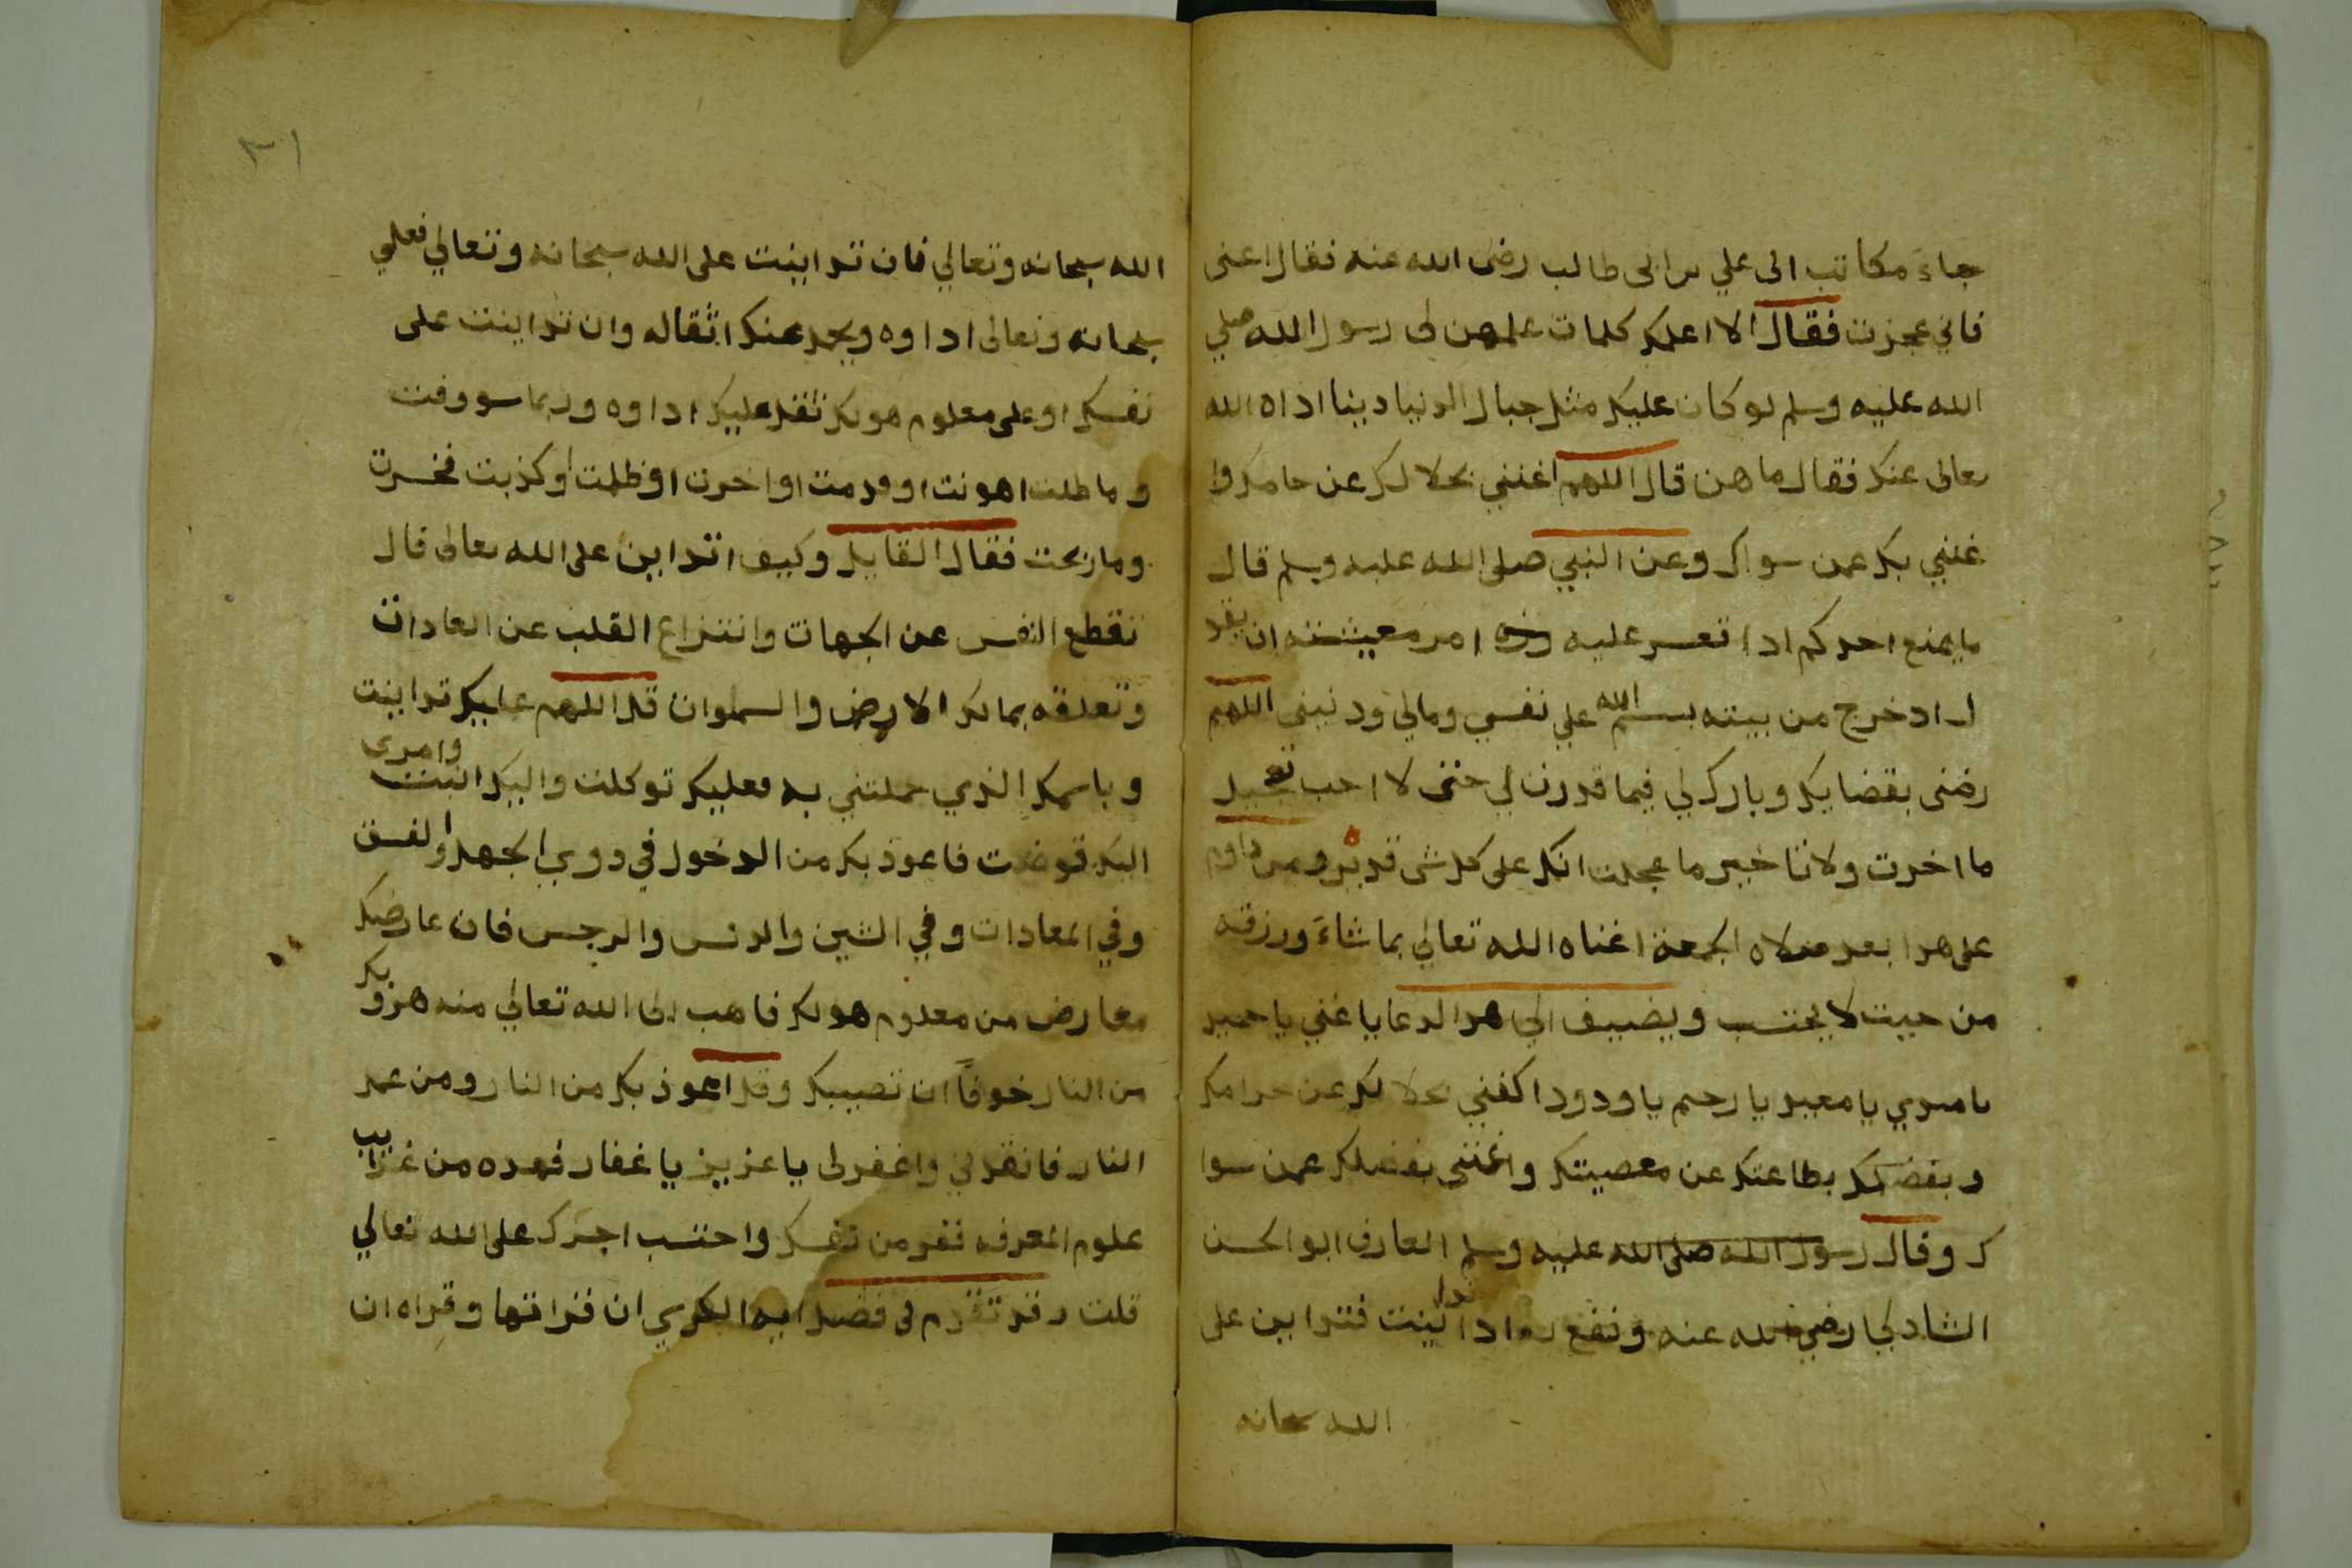 جاء مكاتب الى علي بن ابى طالب رضى الله عنه فقال اعنى
فاني عجزت فقال الا اعلمك كلمات علمهن لى رسول الله صلي
الله عليه وسلم لو كان عليك مثل جبال الدنيا دينا اداه الله
تعالى عنك فقال ما هن قال اللهم اغنني بحلالك عن حرامك وا
غنني بك عمن سواك وعن النبي صلى الله عليه وسلم قال
ما يمنع احدكم اذا تعسر عليه امر معيشته ان يقو
ل اذ خرج من بيته بسم الله علي نفسي ومالي وديني اللهم
رضني بقضايك وبارك لي فيما قدرت لي حتى لا احب تعجيل
ما اخرت ولا تاخير ما عجلت انك على كل شى قدير ومن داوم
على هذا بعد صلاه الجمعة اغناه الله تعالي بما شاء ورزقه
من حيث لا يحتسب ويضيف الي هذا الدعا يا غني يا حميد
يا مبدي يا معيد يا رحيم يا ودود اكفني بحلالك عن حرامك
وبفضلك بطاعتك عن معصيتك واغنني بفضلك عمن سوا
ك وقال رسول الله صلى الله عليه وسلم العارف ابو الحسن
الشاذلي رضي الله عنه ونفع به اذا تداينت فتداين على
الله سبحانه
٣١
الله سبحانه وتعالي فان تداينت على الله سبحانه وتعالي فعلي
سبحانه وتعالى اداوه ويحمد عنك اثقاله وان تداينت على
نفسك او على معلوم هو لك ثقل عليك اداوه وربما سووفت
وما طلت اهونت او قدمت او اخرت او ظلمت او كذبت فخسرت
وما ربحت فقال القايل وكيف اتداين على الله تعالى قال
تقطع النفس عن الجهات وانتزاع القلب عن العادات
وتعلقه بمالك الارض والسموات قل اللهم عليك تداينت
وباسمك الذي حملتني به فعليك توكلت واليك انبت وامرى
اليك فوضت فاعوذ بك من الدخول في دوي الجهل والفسق
وفي المعادات وفي الشين والدنس والرجس فان عارضك
معارض من معلوم هو لك فاهب الى الله تعالي منه هروبك
من النار خوفاً ان تصيبك وقل اعوذ بك من النار ومن عمل
النار فانقذني واغفر لى يا عزيز يا غفار فهذه من غرايب
علوم المعرفه ففر من نفسك واحتسب اجرك على الله تعالي
قلت وقد تقدم لى فضل ايه الكرسي ان قراتها وقراه ان